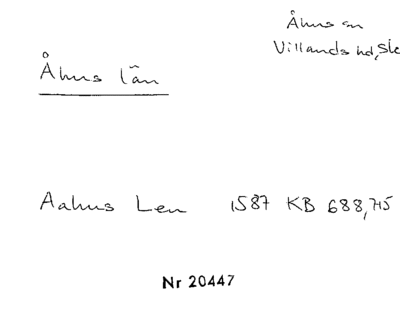 Åhus sn
Villands hd, Sk
Åhus län
Aahus Len 1587 KB 688,715
Nr 20447